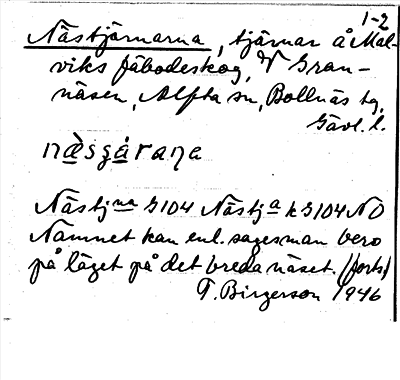 1-2
Nästjärnarna, tjärnar å Mal-
viks fäbodeskog, V Gran-
näsen, Alfta sn, Bollnäs tg,
Gävl. l.
nä̀sʒárana
Nästjna G104 Nästja k G104 NO
Namnet kan enl. sagesman bero
på läget på det breda näset. (forts)
T. Birgerson 1946